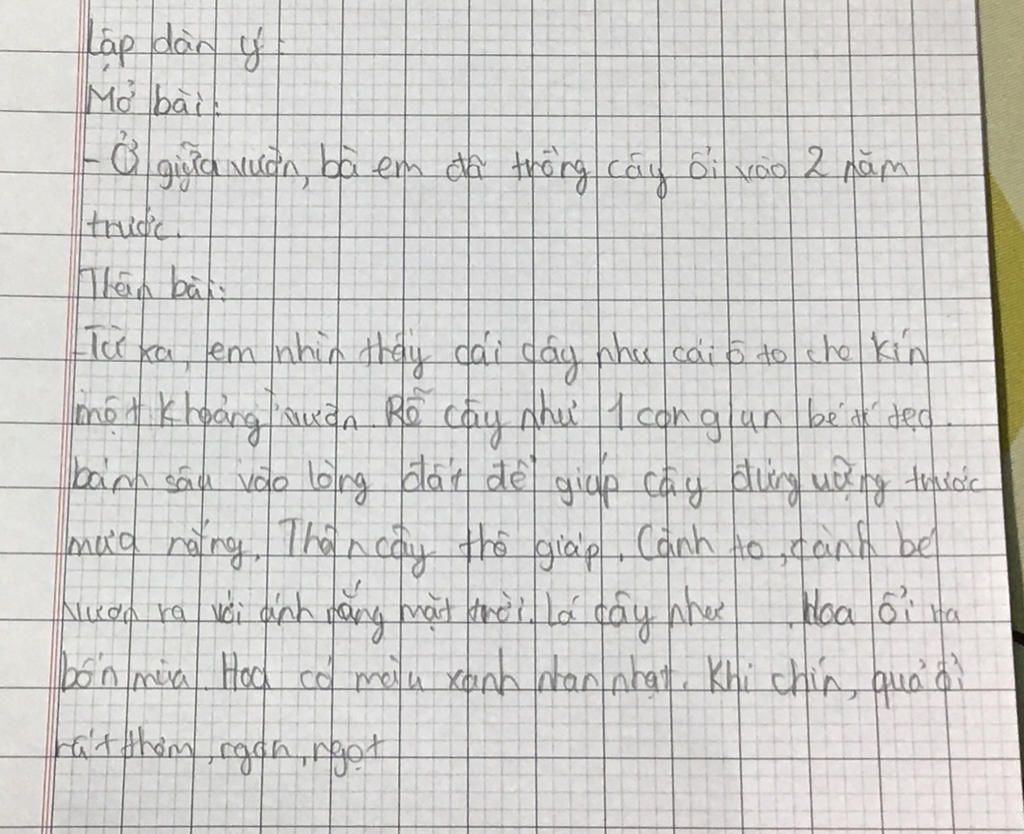 Lập dàn ý
Mở bài:
- Ở giữa vườn, bà em đã trồng cây ổi vào 2 năm
trước.
Thân bài:
- Từ xa, em nhìn thấy cái cây như cái ô to che kín
một khoảng vườn. Rễ cây như 1 con giun bé tí tẹo.
bám sâu vào lòng đất để giúp cây đứng vững trước
mưa nắng. Thân cây thô giáp. Cành to, cành bé
vươn ra với ánh nắng mặt trời. Lá dây như . Hoa ổi ra
bốn mùa. Hoa có màu xanh nhàn nhạt. Khi chín, quả ổi
rất thơm, ngon, ngọt